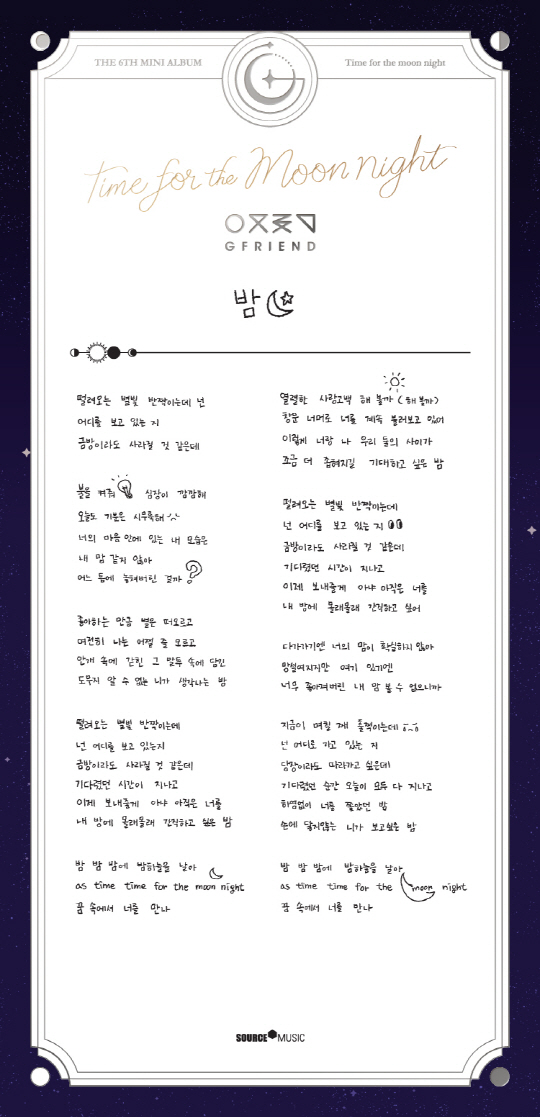 THE 6TH MINI ALBUM
Time for the moon night
Time for the Moon night
GFRIEND
밤
떨려오는 별빛 반짝이는데 넌
어디를 보고 있는 지
금방이라도 사라질 것 같은데
불을 켜줘 심장이 깜깜해
오늘도 기분은 시무룩해
너의 마음 안에 있는 내 모습은
내 맘 같지 않아
어느 틈에 놓쳐버린 걸까
좋아하는 만큼 별은 떠오르고
여전히 나는 어쩔 줄 모르고
안개 속에 갇힌 그 말투 속에 담긴
도무지 알 수 없는 니가 생각나는 밤
떨려오는 별빛 반짝이는데
넌 어디를 보고 있는지
금방이라도 사라질 것 같은데
기다렸던 시간이 지나고
이제 보내줄게 아냐 아직은 너를
내 방에 몰래몰래 간직하고 싶은 밤
밤 밤 밤에 밤하늘을 날아
as time time for the moon night
꿈 속에서 너를 만나
열렬한 사랑고백 해 볼까 (해 볼까)
창문 너머로 너를 계속 불러보고 있어
이렇게 너랑 나 우리 둘의 사이가
조금 더 좁혀지길 기대하고 싶은 밤
떨려오는 별빛 반짝이는데
넌 어디를 보고 있는 지
금방이라도 사라질 것 같은데
기다렸던 시간이 지나고
이제 보내줄게 아냐 아직은 너를
내 방에 몰래몰래 간직하고 싶어
다가가기엔 너의 맘이 확실하지 않아
망설여지지만 여기 있기엔
너무 좋아져버린 내 맘 볼 수 없으니까
지금이 며칠 째 훌쩍이는데
넌 어디로 가고 있는 지
당장이라도 따라가고 싶은데
기다렸던 순간 오늘이 모두 다 지나고
하염없이 너를 쫓았던 밤
손에 닿지않는 니가 보고싶은 밤
밤 밤 밤에 밤하늘을 날아
as time time for the moon night
꿈 속에서 너를 만나
SOURCE MUSIC